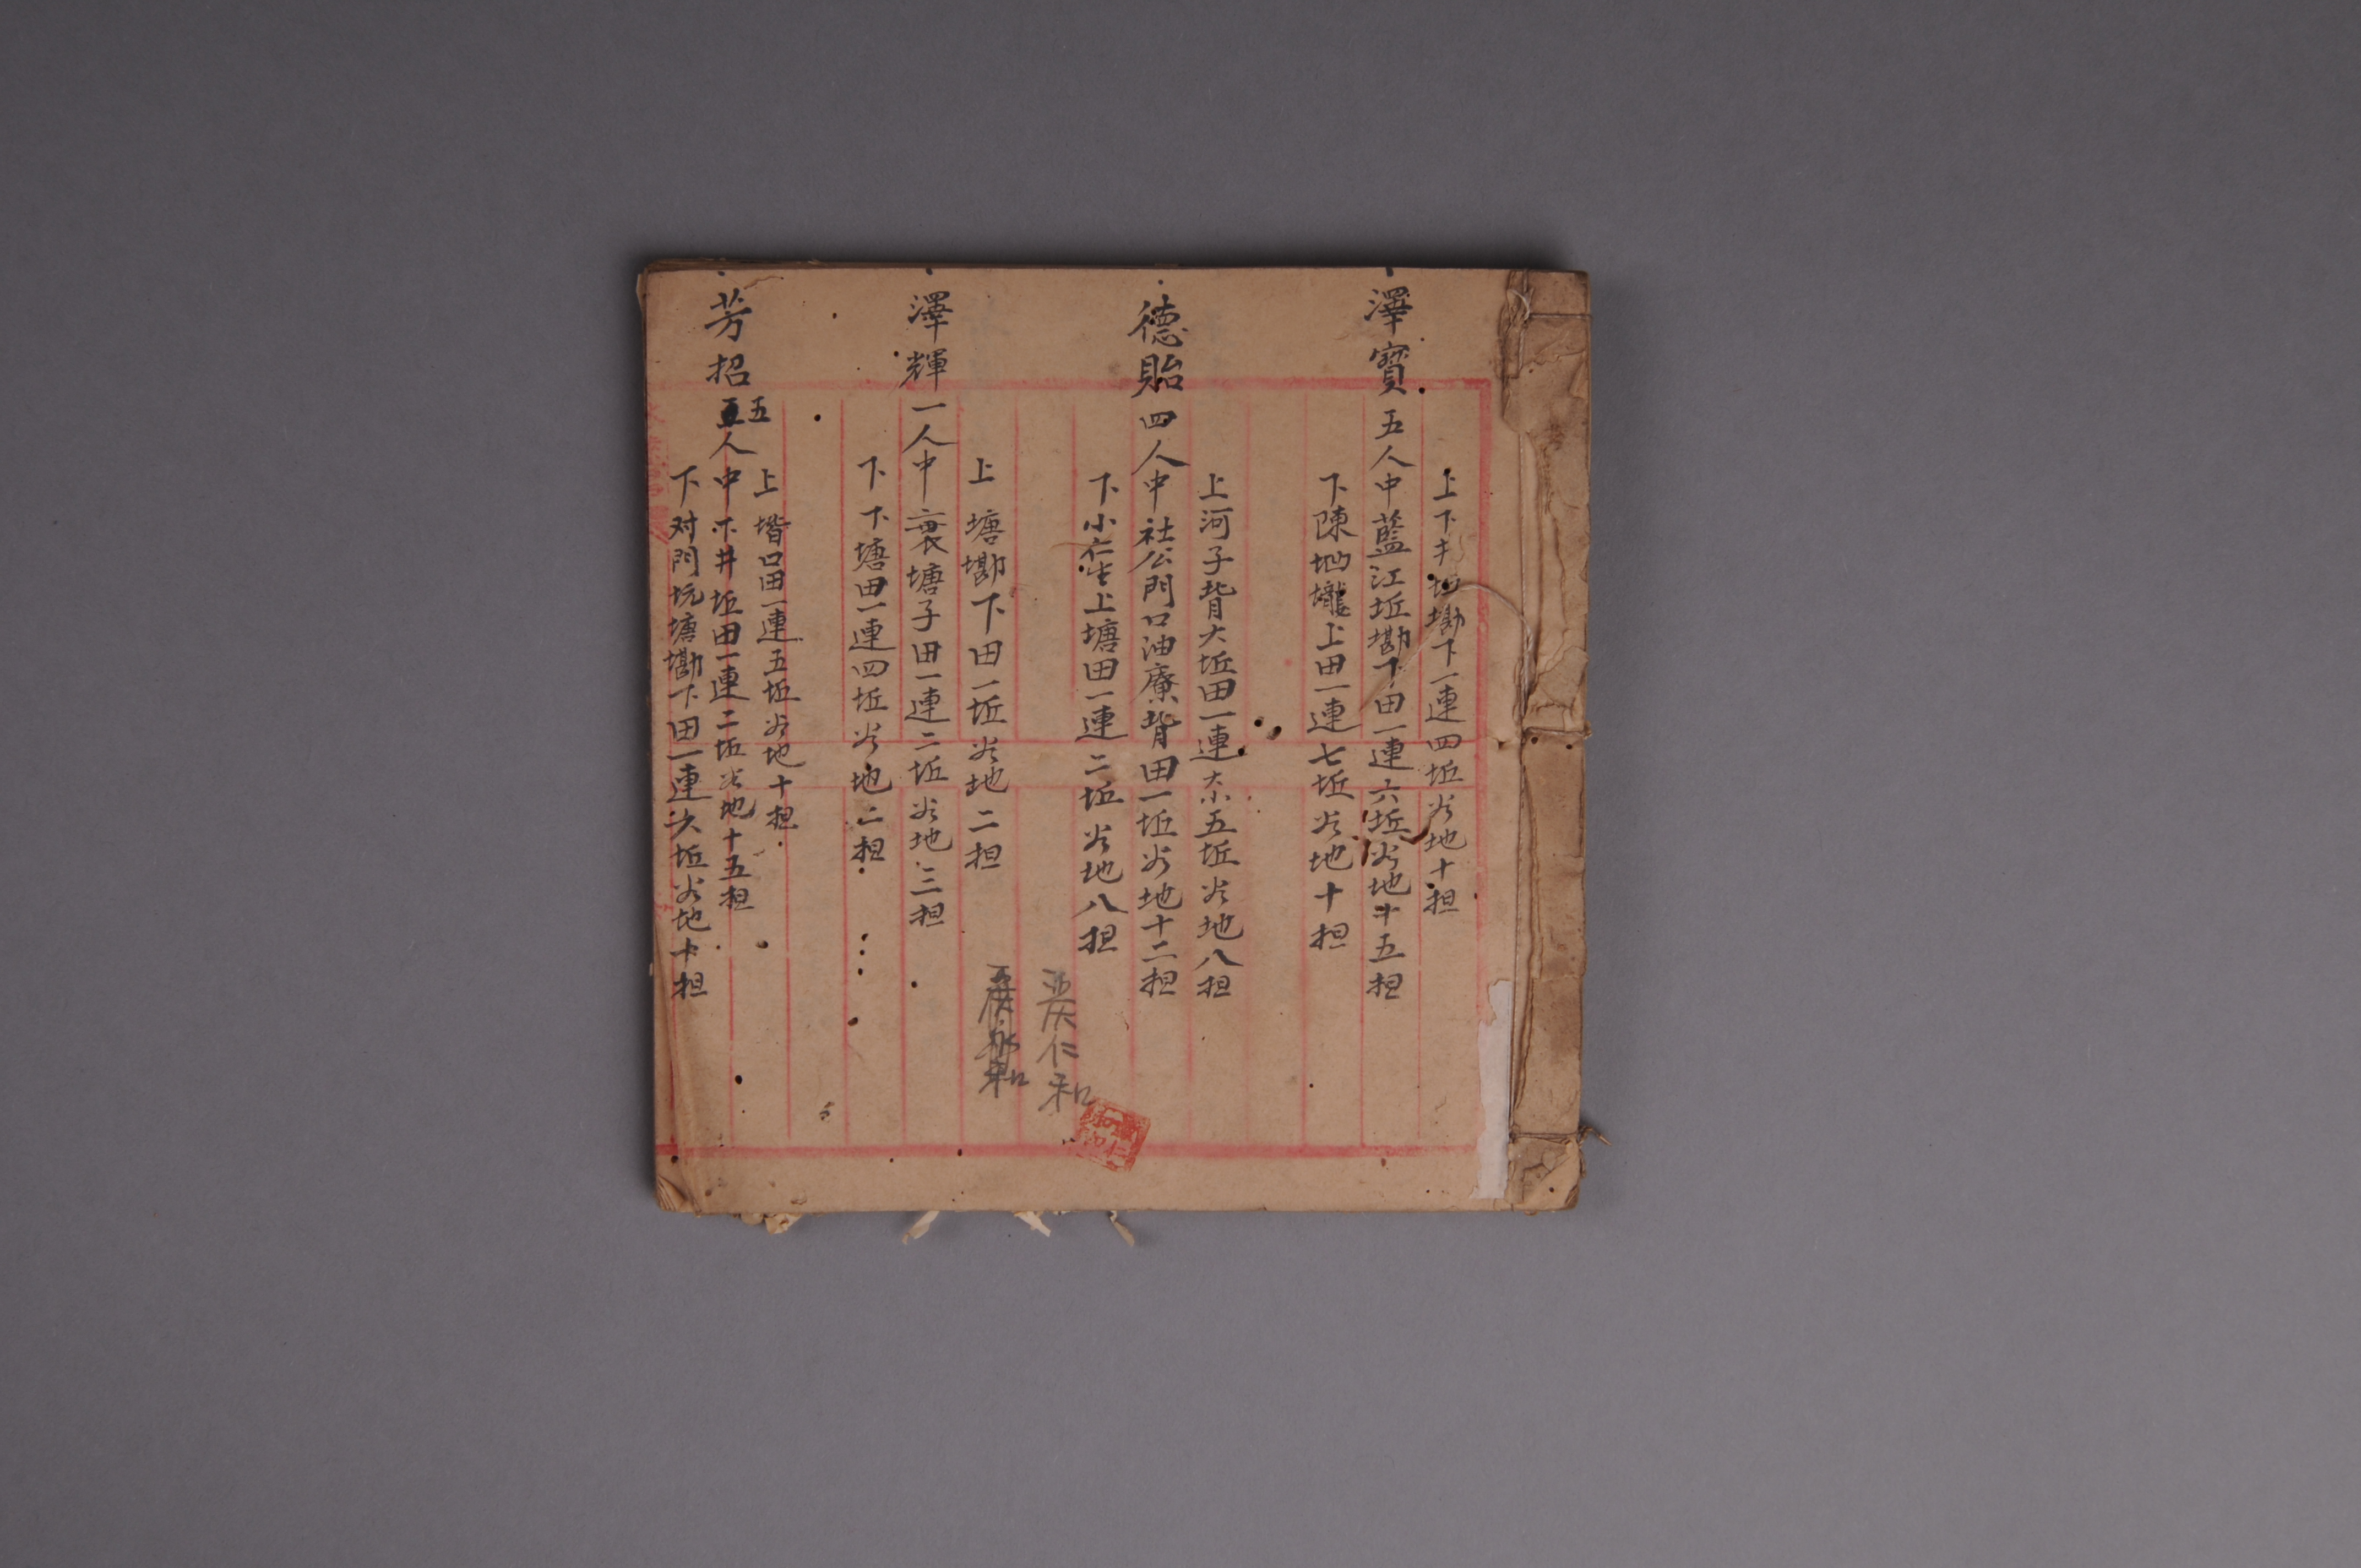 上下丰坵勘下一連四坵谷地十担
澤寳五人中藍江坵勘下田一連六坵谷地十五担
下陳坳壠上田一連七坵谷地十担
上河子背大坵田一連大小五坵谷地八担
德貽四人中社公門口油寮背田一坵谷地十二担
下小上塘田一連二坵谷地八担
仁和
上塘勘下田一坵谷地二担
和
澤輝一人中裏塘子田一連二坵谷地三担
下下塘田一連四坵谷地二担
上堦口田一連五坵谷地十担
芳招五人中下井坵田一連二坵谷地十五担
下对門坑塘勘下田一連六坵谷地十担